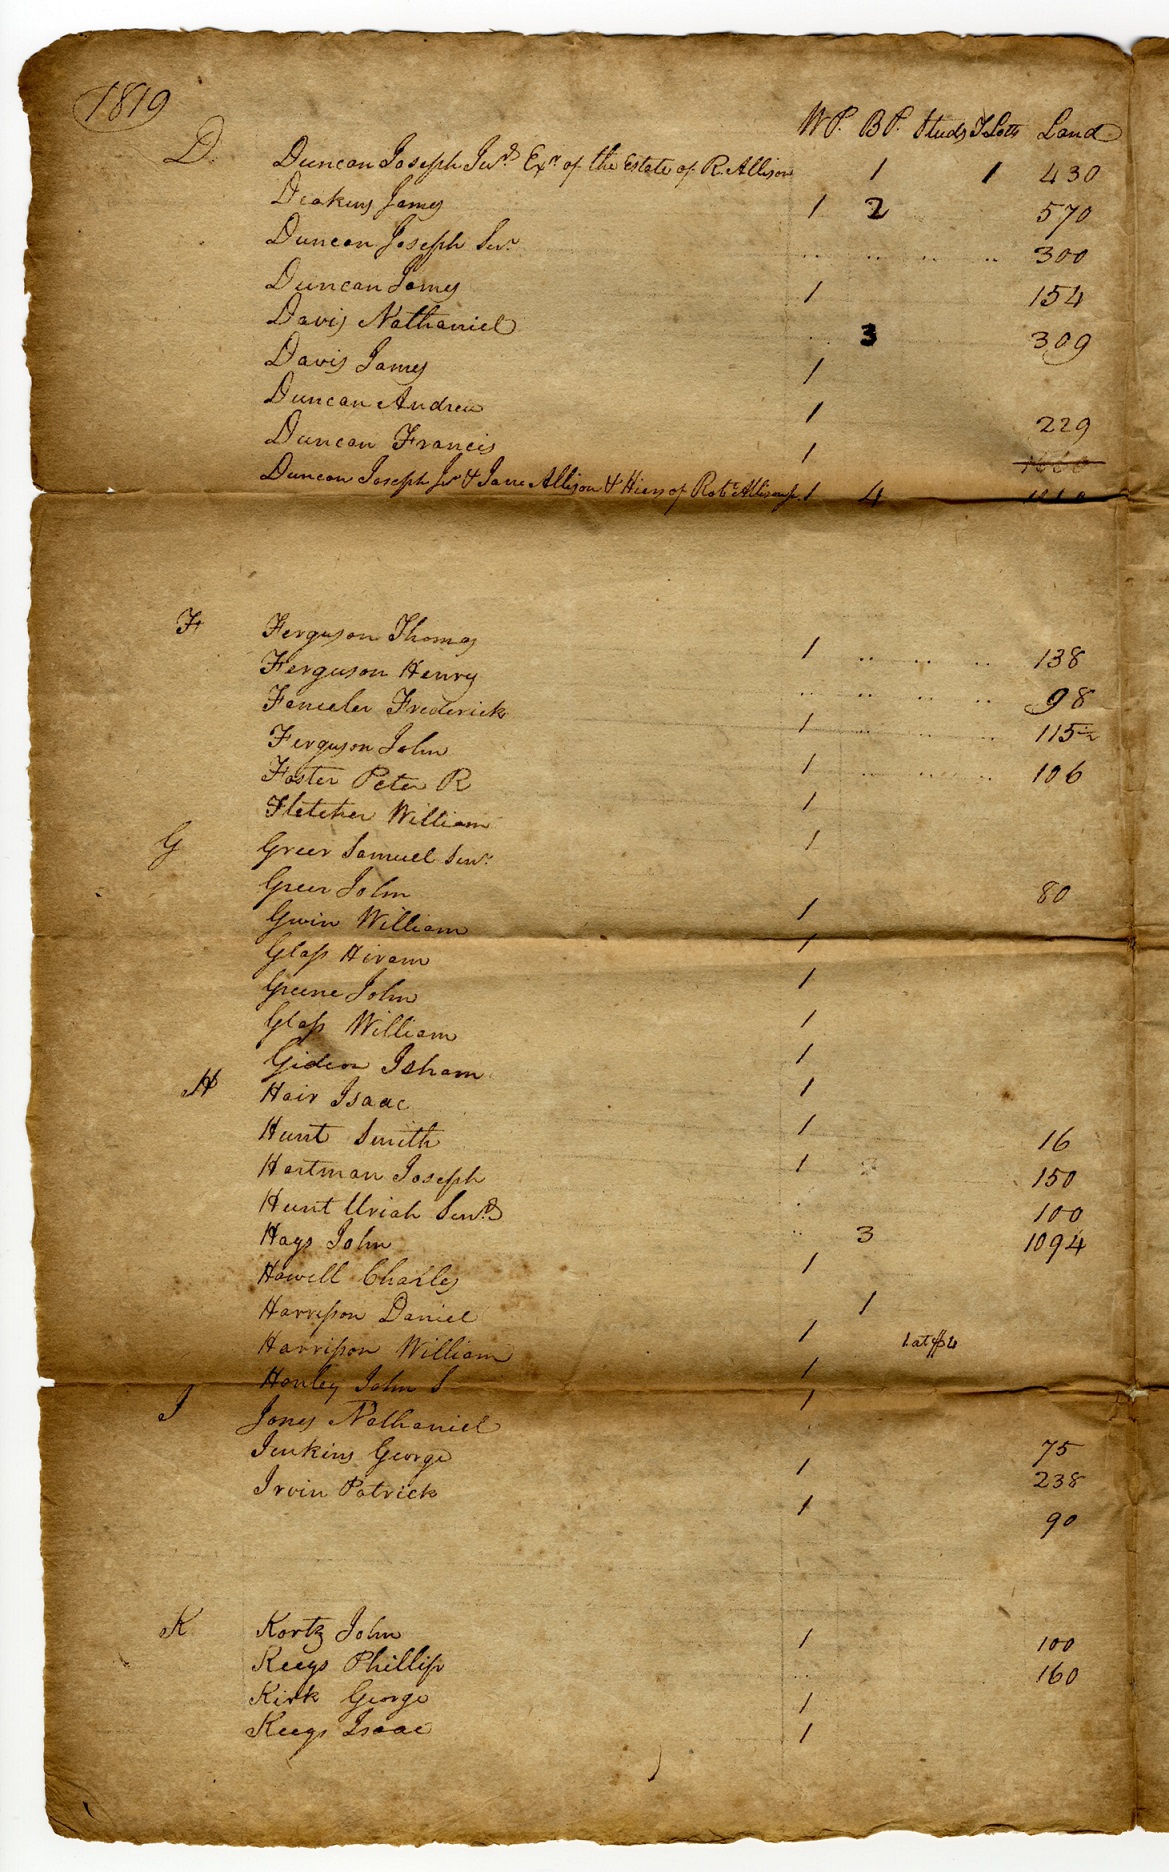 1819
W P. B P. Studs T Lotts Land
D. Duncan Joseph Junr. Exr. of the Estate of R. Allison 1 1 430
Deakins James 1 2 570
Duncan Joseph Senr. 300
Duncan James 1 154
Davis Nathaniel 3 309
Davis James 1
Duncan Andrew 1 229
Duncan Francis 1
Duncan Joseph Jr & Jane Allison & Hiers of Robt. Allison 1 4
F Ferguson Thomas 1 138
Ferguson Henry 98
Fanceler Frederick 1 115½
Ferguson John 1 106
Foster Peter R 1
Fletcher William 1
G Greer Samuel Senr. 80
Greer John 1
Gwin William 1
Glass Hiram 1
Greene John 1
Glass William 1
Gideon Isham 1
H Hair Isaac 1 16
Hunt Smith 1 150
Hartman Joseph 100
Hunt Uriah Senr. 3 1094
Hays John 1
Howell Charles 1
Harrison Daniel 1 1 at $4
Harrison William 1
Hanley John S 1
J Jones Nathaniel 75
Jenkins George 1 238
Irvin Patrick 1 90
K Kortz John 1 100
Keeys Phillip 160
Kirk George 1
Keeys Isaac 1